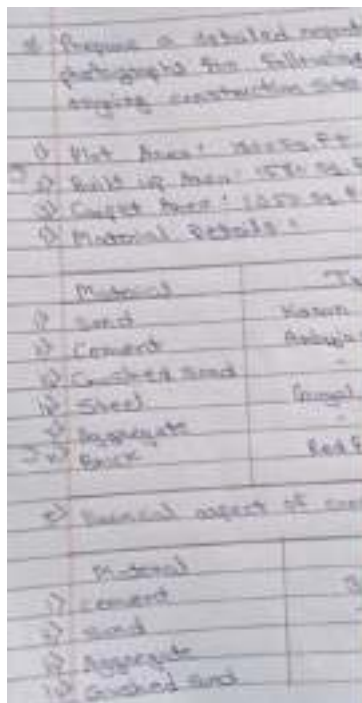 Prepare a detailed report
photographs for following
ongoing construction site
1) Plot Area :
2) Built up Area : 1580 sq.
3) Carpet Area : 1250 sq. ft
4) Material Details :
Material
i) Sand
ii) Cement Ambuja
iii) Crushed Sand
iv) Steel
v) Aggregate
vi) Brick Red
Financial aspect of
Material
i) Cement
ii) Sand
iii) Aggregate
iv) Crushed Sand